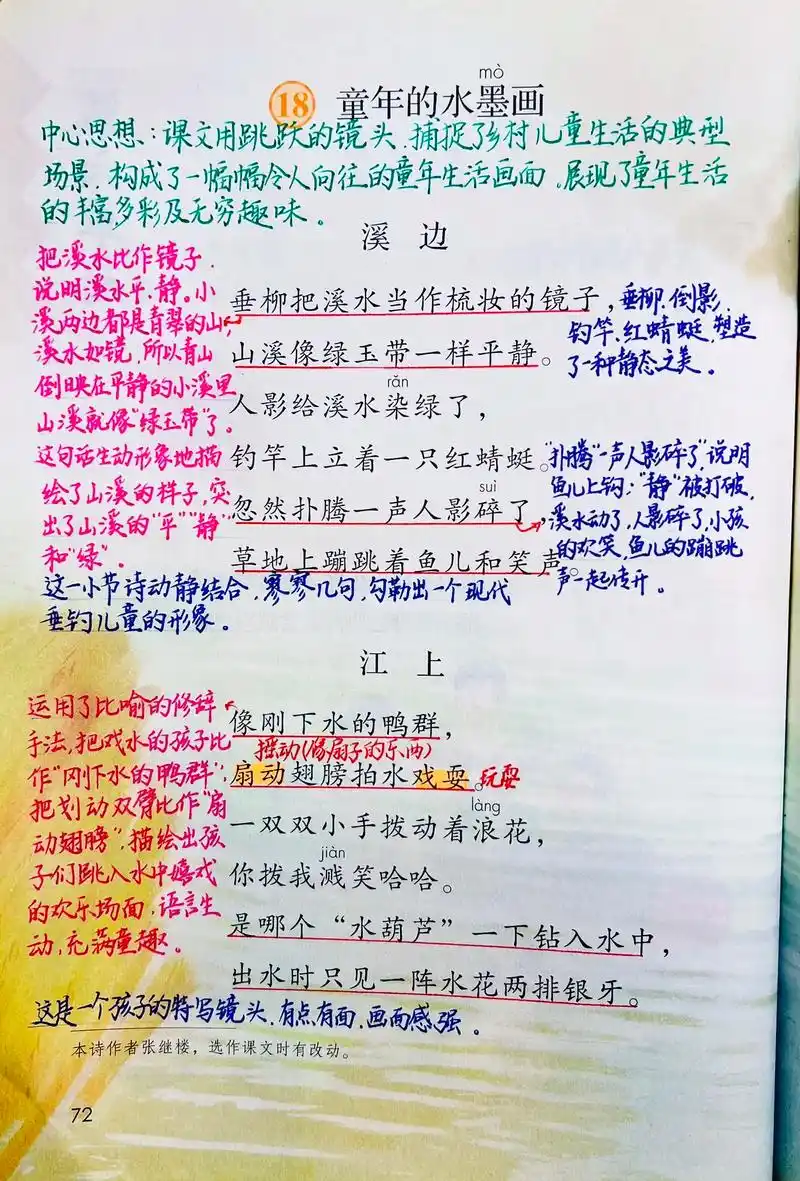 mò
18 童年的水墨画
中心思想：课文用跳跃的镜头，捕捉了乡村儿童生活的典型
场景，构成了一幅幅令人向往的童年生活画面。展现了童年生活
的丰富多彩及无穷趣味。
溪 边
把溪水比作镜子，
说明溪水平、静。小
溪两边都是青翠的山，
溪水如镜，所以青山
倒映在平静的小溪里
山溪就像“绿玉带”了。
这句话生动形象地描
绘了山溪的样子，突
出了山溪的“平”“静”
和“绿”。
垂柳把溪水当作梳妆的镜子，
山溪像绿玉带一样平静。
rǎn
人影给溪水染绿了，
钓竿上立着一只红蜻蜓。
suì
忽然扑腾一声人影碎了，
草地上蹦跳着鱼儿和笑声。
垂柳、倒影、
钓竿、红蜻蜓，塑造
了一种静态之美。
“扑腾”一声人影碎了”说明
鱼儿上钩；“静”被打破，
溪水动了，人影碎了，小孩
的欢笑，鱼儿的蹦跳
声一起传开。
这一小节诗动静结合，寥寥几句，勾勒出一个现代
垂钓儿童的形象。
江 上
运用了比喻的修辞
手法，把戏水的孩子比
作“刚下水的鸭群”，
把划动双臂比作“扇
动翅膀”，描绘出孩
子们跳入水中嬉戏
的欢乐场面，语言生
动，充满童趣。
像刚下水的鸭群，
摇动（像扇子的东西）
扇动翅膀拍水戏耍。玩耍
làng
一双双小手拨动着浪花，
jiàn
你拨我溅笑哈哈。
是哪个“水葫芦”一下钻入水中，
出水时只见一阵水花两排银牙。
这是一个孩子的特写镜头，有点有面，画面感强。
本诗作者张继楼，选作课文时有改动。
72